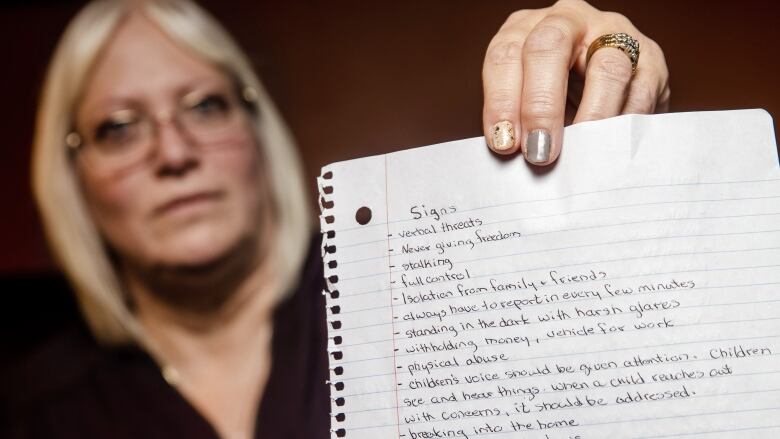 Signs
- verbal threats
- Never giving freedom
- stalking
- full control
- Isolation from family + friends
- always have to report in every few minutes
- standing in the dark with harsh glares
- withholding money, vehicle for work
- physical abuse
- children's voice should be given attention. Children
see and hear things. when a child reaches out
with concerns, it should be addressed.
- breaking into the home